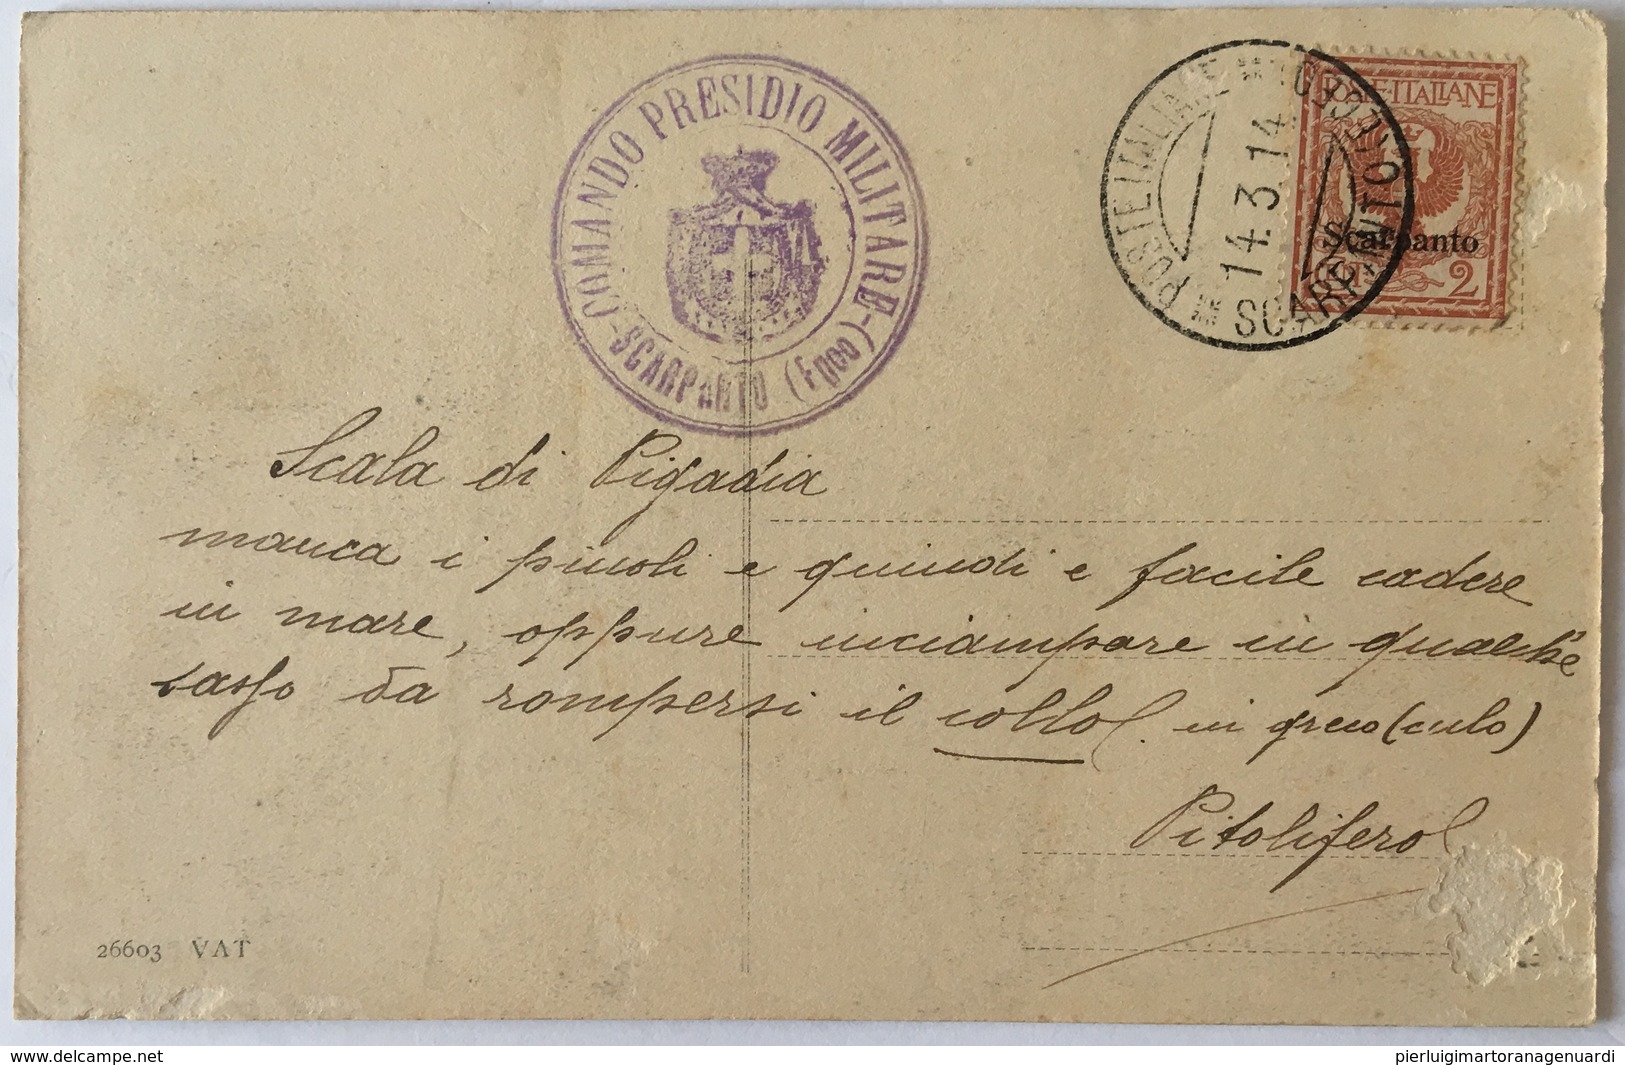 COMANDO PRESIDIO MILITARE
SCARPANTO (Egeo)
POSTE ITALIANE
14.3.14.
SCARPANTO
POSTE·ITALIANE
Scarpanto
2
Scala di Pigadia
manca i piuoli e quindi e facile cadere
in mare, oppure inciampare in qualche
sasso da rompersi il collo. in greco (culo)
Pitolifero
26603 VAT
delcampe.net
pierluigimartoranagenuardi